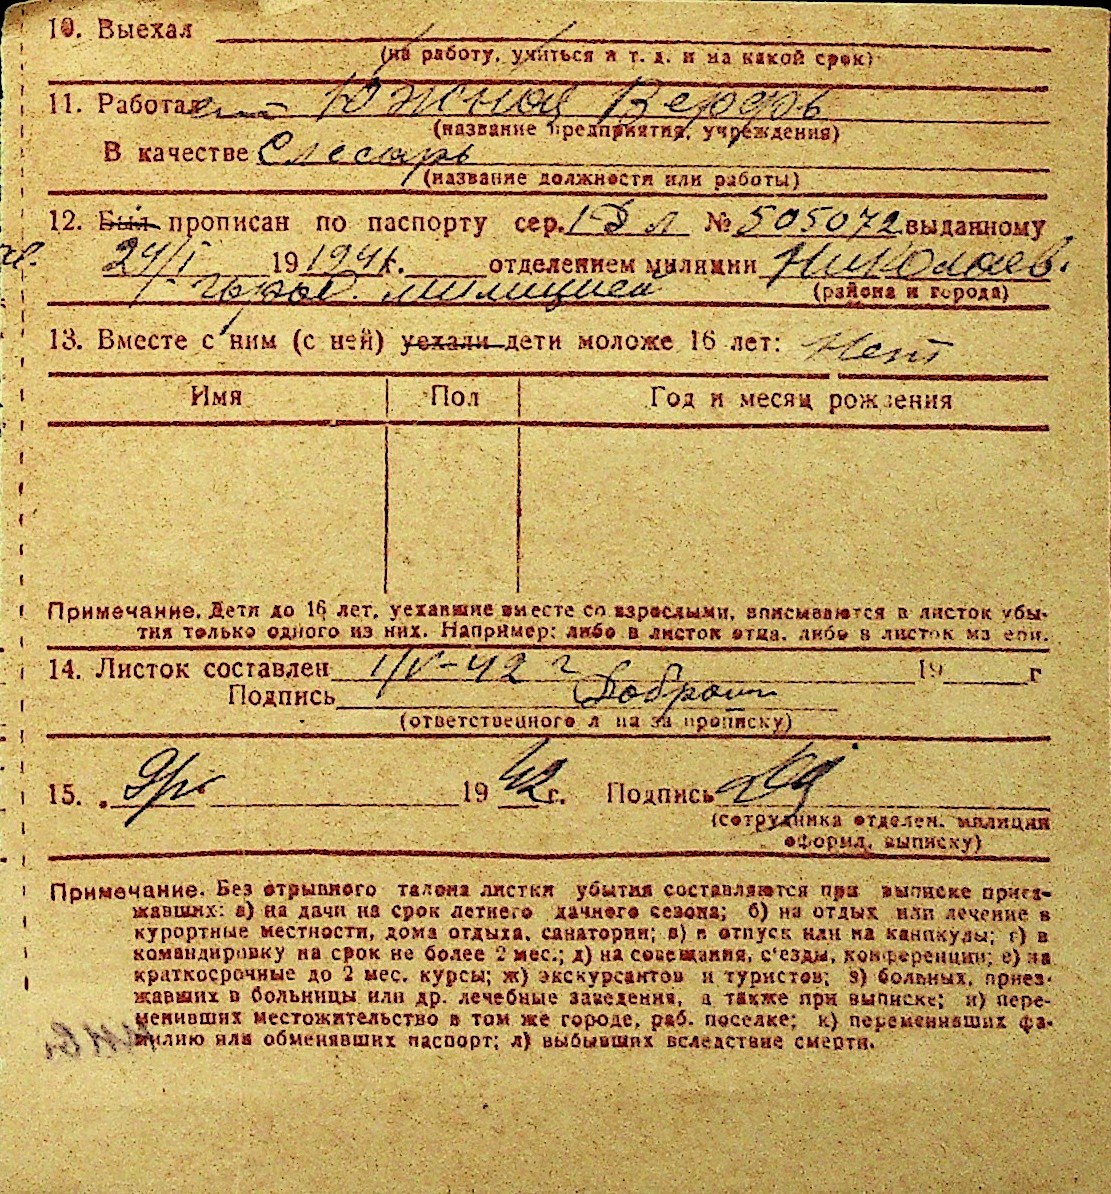 10. Выехал
(на работу, учиться и т. д. и на какой срок)
11. Работает Южная Верфь
(название предприятия, учреждения)
В качестве Слесарь
(название должности или работы)
12. Был прописан по паспорту сер. I Дл № 505072 выданному
24/I 19 1941г. отделением милиции Николаев.
горов. милицией (района и города)
13. Вместе с ним (с ней) уехали дети моложе 16 лет: Нет
Имя Пол Год и месяц рождения
Примечание. Дети до 16 лет, уехавшие вместе со взрослыми, вписываются в листок убы-
тия только одного из них. Например: либо в листок отца, либо в листок матери.
14. Листок составлен 1/V-42 г 19 г
Подпись
(ответственного лица за прописку)
15. 19 42 г. Подпись
(сотрудника отделен. милиции
оформл. выписку)
Примечание. Без отрывного талона листки убытия составляются при выписке приез-
жавших: а) на дачи на срок летнего дачного сезона; б) на отдых или лечение в
курортные местности, дома отдыха, санатории; в) в отпуск или на каникулы; г) в
командировку на срок не более 2 мес.; д) на совещания, с'езды, конференции; е) на
краткосрочные до 2 мес. курсы; ж) экскурсантов и туристов; з) больных, приез-
жавших в больницы или др. лечебные заведения, а также при выписке; и) пере-
менивших местожительство в том же городе, раб. поселке; к) переменивших фа-
милию или обменявших паспорт; л) выбывших вследствие смерти.